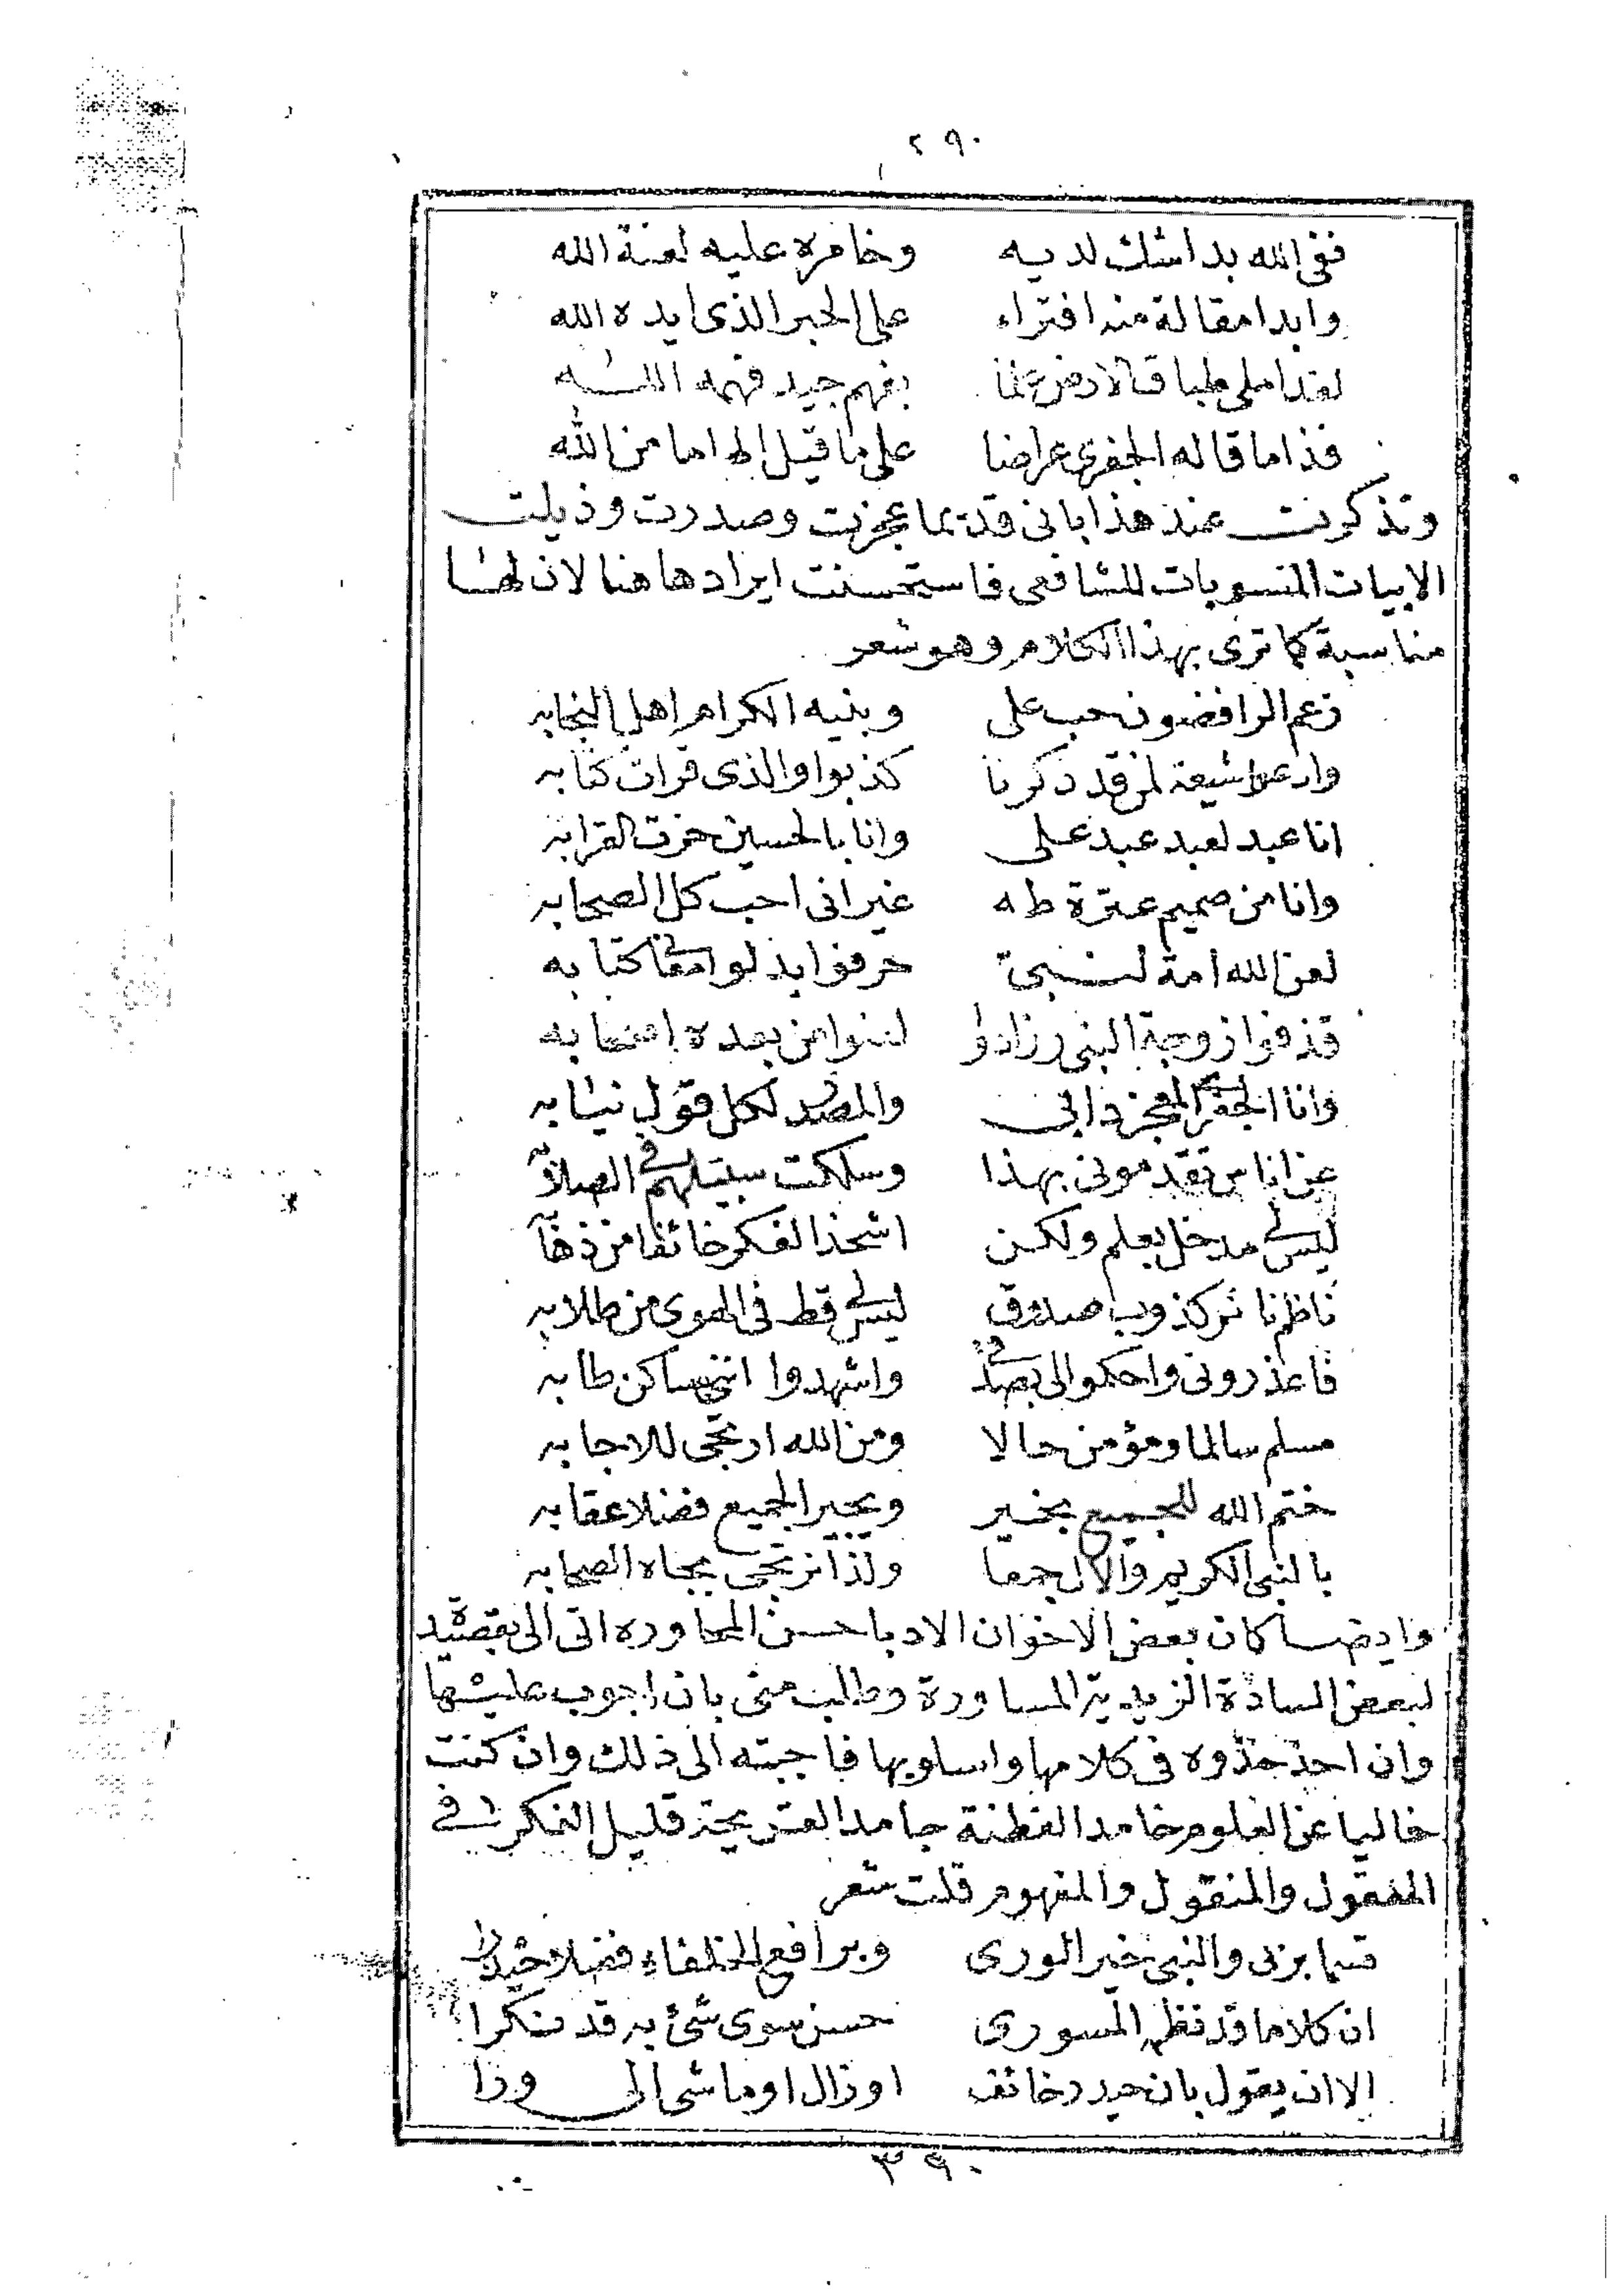 ٢٩٠
ففي الله بدا شك لديه وخامره عليه لعنة الله
وابدا مقالة منه افتراء على الحبر الذي ايده الله
لقد املى طباق الارض علما بفهم جيد فهمه الله
فذا ما قاله الجفري عراضا على ما قيل الهاما من الله
وتذكرت عند هذا باني قد بما عجزت وصدرت وذيلت
الابيات المنسوبات للشافعي فاستحسنت ايرادها هنا لان لها
مناسبة كما ترى بهذا الكلام وهو شعر
زعم الرافضون حب علي وبنيه الكرام اهل النجابه
وادعوا شيعة لمن قد ذكرنا كذبوا والذي قرات كتابه
انا عبد لعبد عبد علي وانا بالحسين حزت القرابه
وانا من صميم عترة طه غير اني احب كل الصحابه
لعن الله امة لنبي حرفوا بدلوا كتابه
قذفوا زوجة النبي وزادوا لعنوا من بعده اصحابه
وانا الجفري المعجز دابي والمصدر لكل قول
عن اناس تقدموني بهذا وسلكت سبيلهم في
ليس لي مدخل بعلم ولكن اشحذ الفكر خائفا من ذهابه
ناظم نا ثر كذوب صدوق ليس لي قط في الهوى من طلابه
فاعذروني واحكموا لي بصدق واشهدوا انني ساكن طابه
مسلم سالما ومؤمن حالا ومن الله ارتجي للاجابه
ختم الله للجميع بخير ويجير الجميع فضلا عقابه
بالنبي الكريم والال جمعا ولذا نرتجي بجاه الصحابه
وايضا كان بعض الاخوان الادبا حسن المحاوره اتى الي بقصيدة
لبعض السادة الزيدية المساورة وطلب مني بان اجوب عليها
وان احذ حذوه في كلامها واسلوبها فاجبته الى ذلك وان كنت
خاليا عن العلوم خامد الفطنة جامد القريحة قليل الفكر في
المعقول والمنقول والمفهوم قلت شعر
قسما بربي والنبي خير الورى وبرافع الخلفاء فضلا حيدرا
ان كلاما قد نظم المسوري حسن سوى شئ به قد تنكرا
الا ان يقول بان حيدر خائف او زال او ماشى الى وزا
٣٩٠